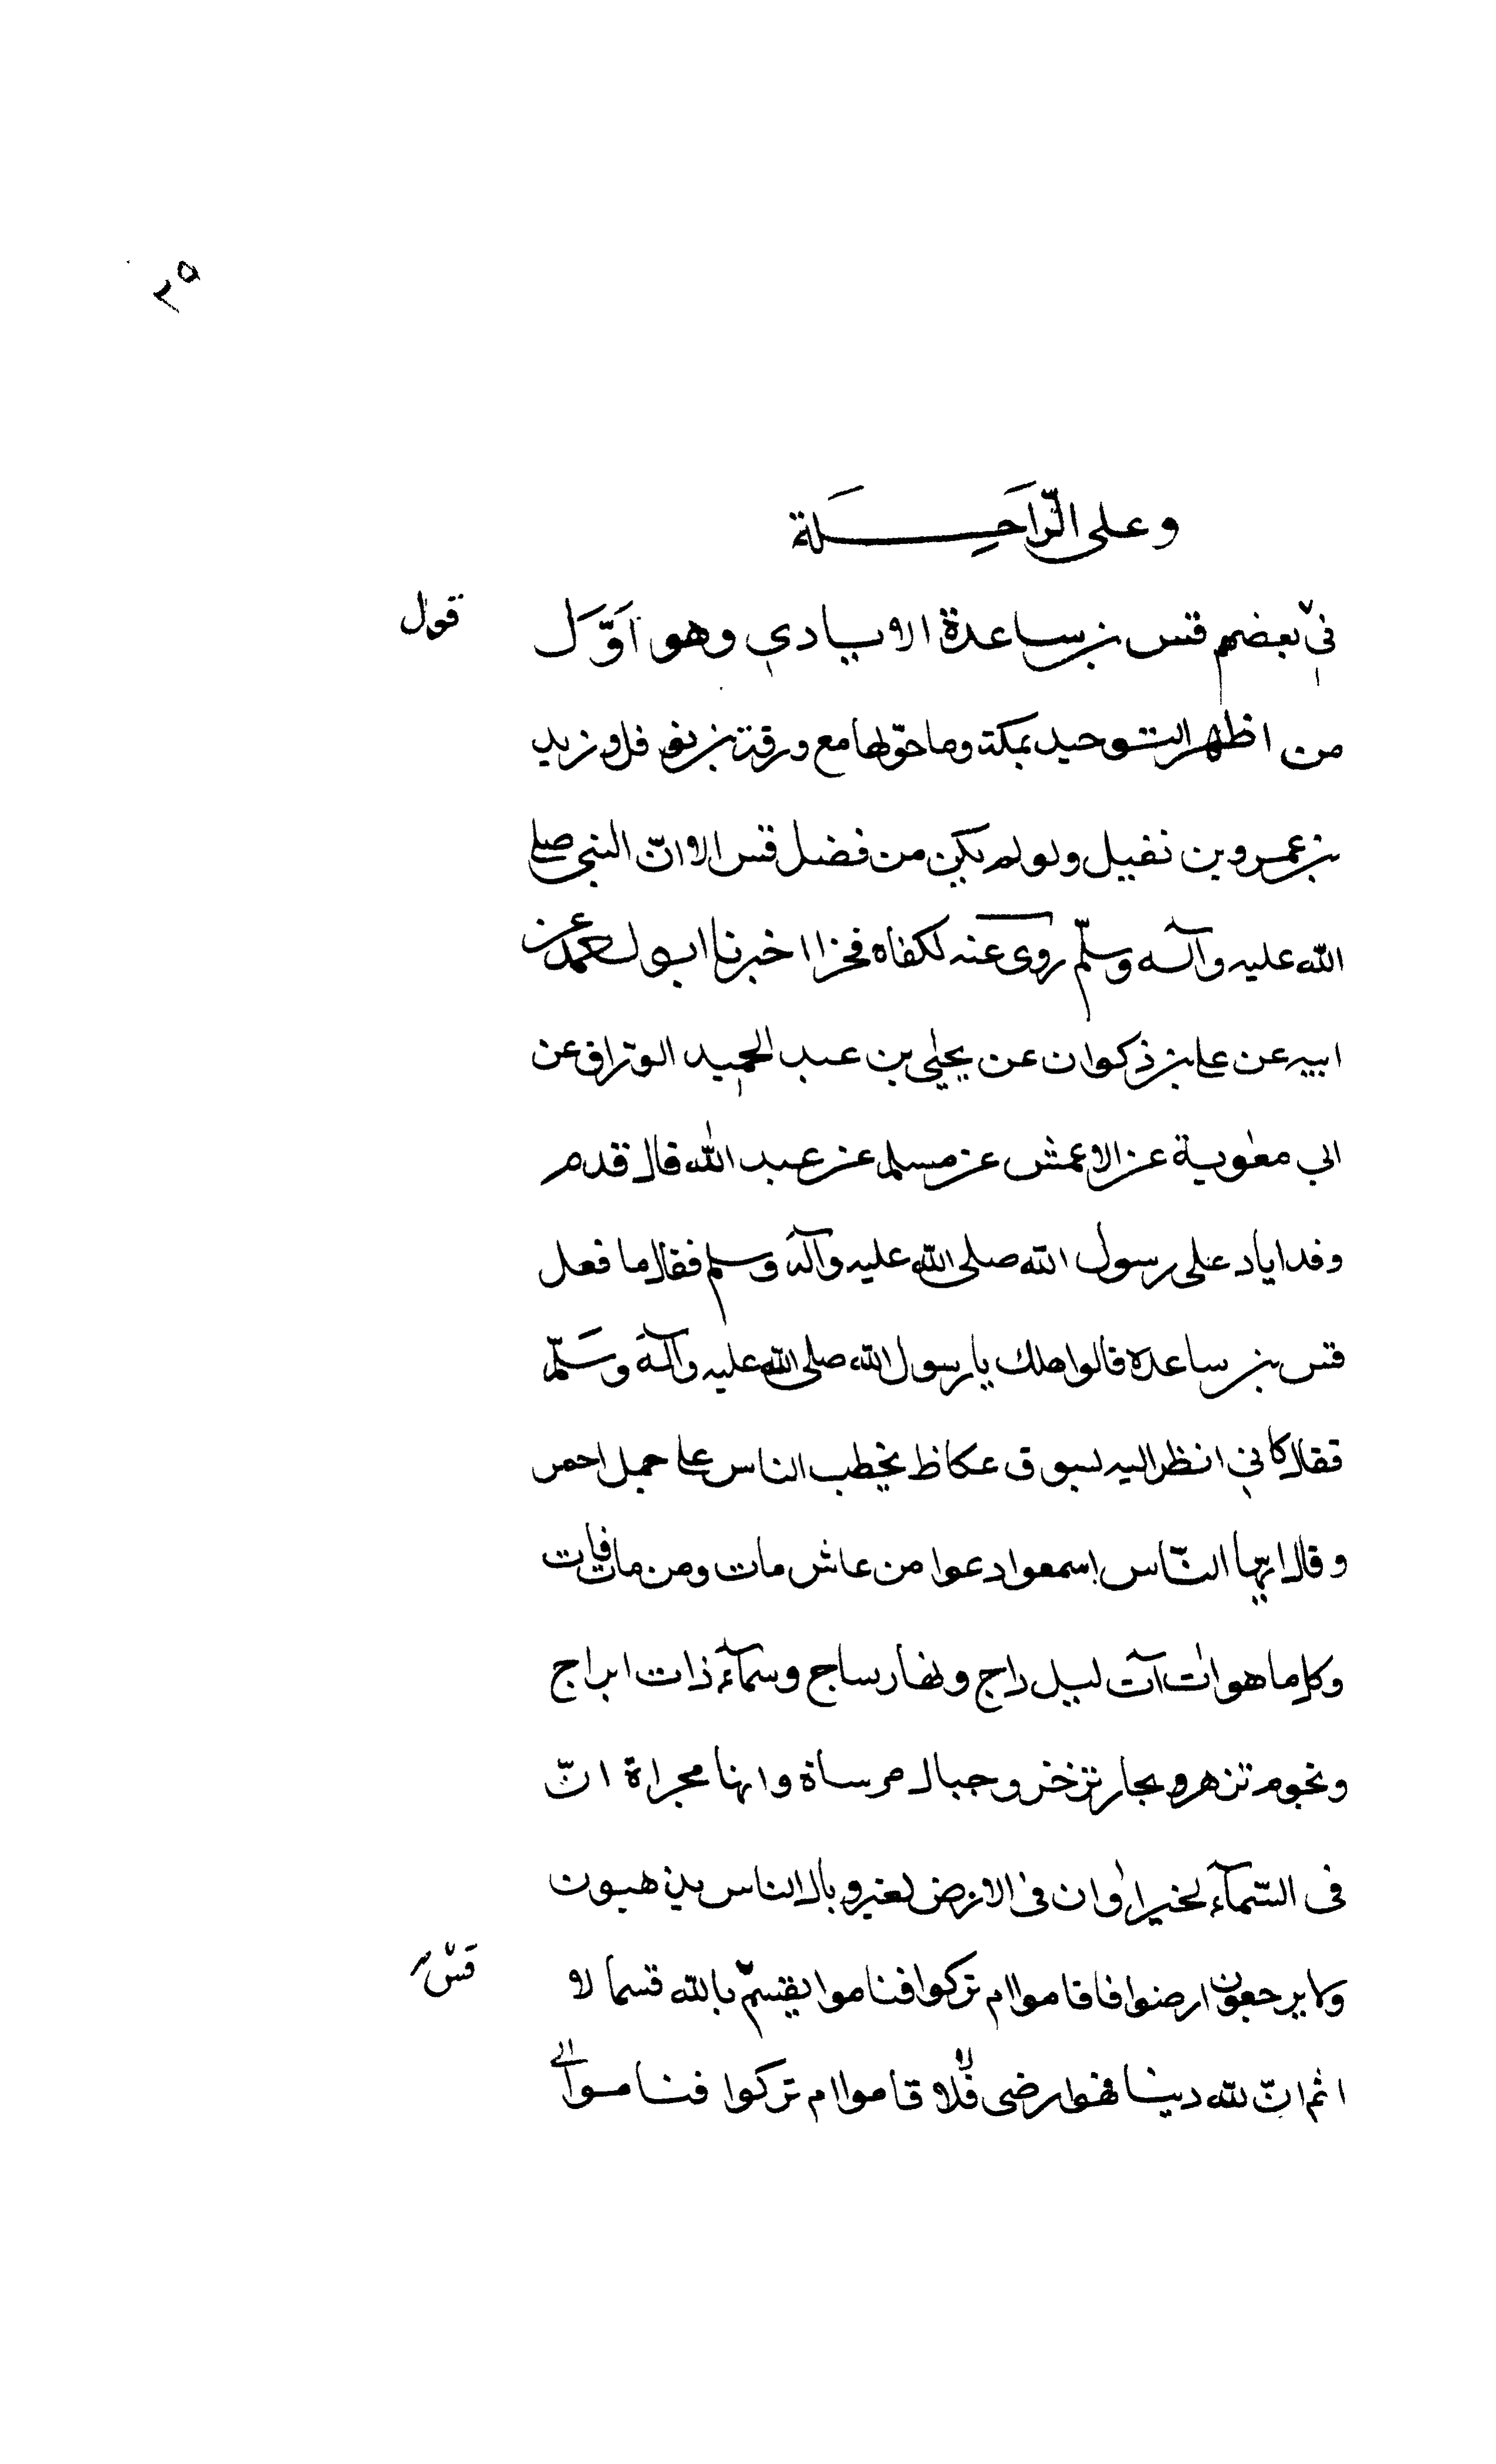 ٢٥
وعلى الرَّاحِلَة
فيْ بعضهم قس بن ساعدة الايادي وهو اَوَّل
قول
من اظهر التوحيد بمكة وما حوّلها مع ورقة بن نوفل وزيد
بن عمرو بن نفيل ولو لم يكن من فضل قس الا انّ النبي صلى
الله عليه وآله وسلّم روى عنه لكفاه فخرا اخبرنا ابو عن
ابيه عن على بن ذكوان عن يحيٰي بن عبد الحميد الوراق عن
ابي معٰوية عن الاعمش عن مسلم عن عبد الله قال قدم
وفد اياد على رسول الله صلى الله عليه وآله وسلم فقال ما فعل
قس بن ساعدة قالوا هلك يا رسول الله صلى الله عليه وآله وسَلّم
فقال كاني انظر اليه بسوق عكاظ يخطب الناس على جمل احمر
وقال ايها النّاس اسمعوا وعوا من عاش مات ومن مات فات
وكل ما هو اٰت آت ليل داج ونهار ساج وسمآء ذات ابراج
ونجوم تزهر وبحار تزخر وجبال مرساة وانهار مجراة انّ
فى السّمآء لخيرا وان فى الارض لعبرا وبال الناس يذهبون
ولا يرجعون ارضوا فاقاموا ام تركوا فناموا يقسم بالله قسما لا
قسٌ
اثم انّ لله دينا هو ارضى فلا قاموا ام تركوا فناموا الى